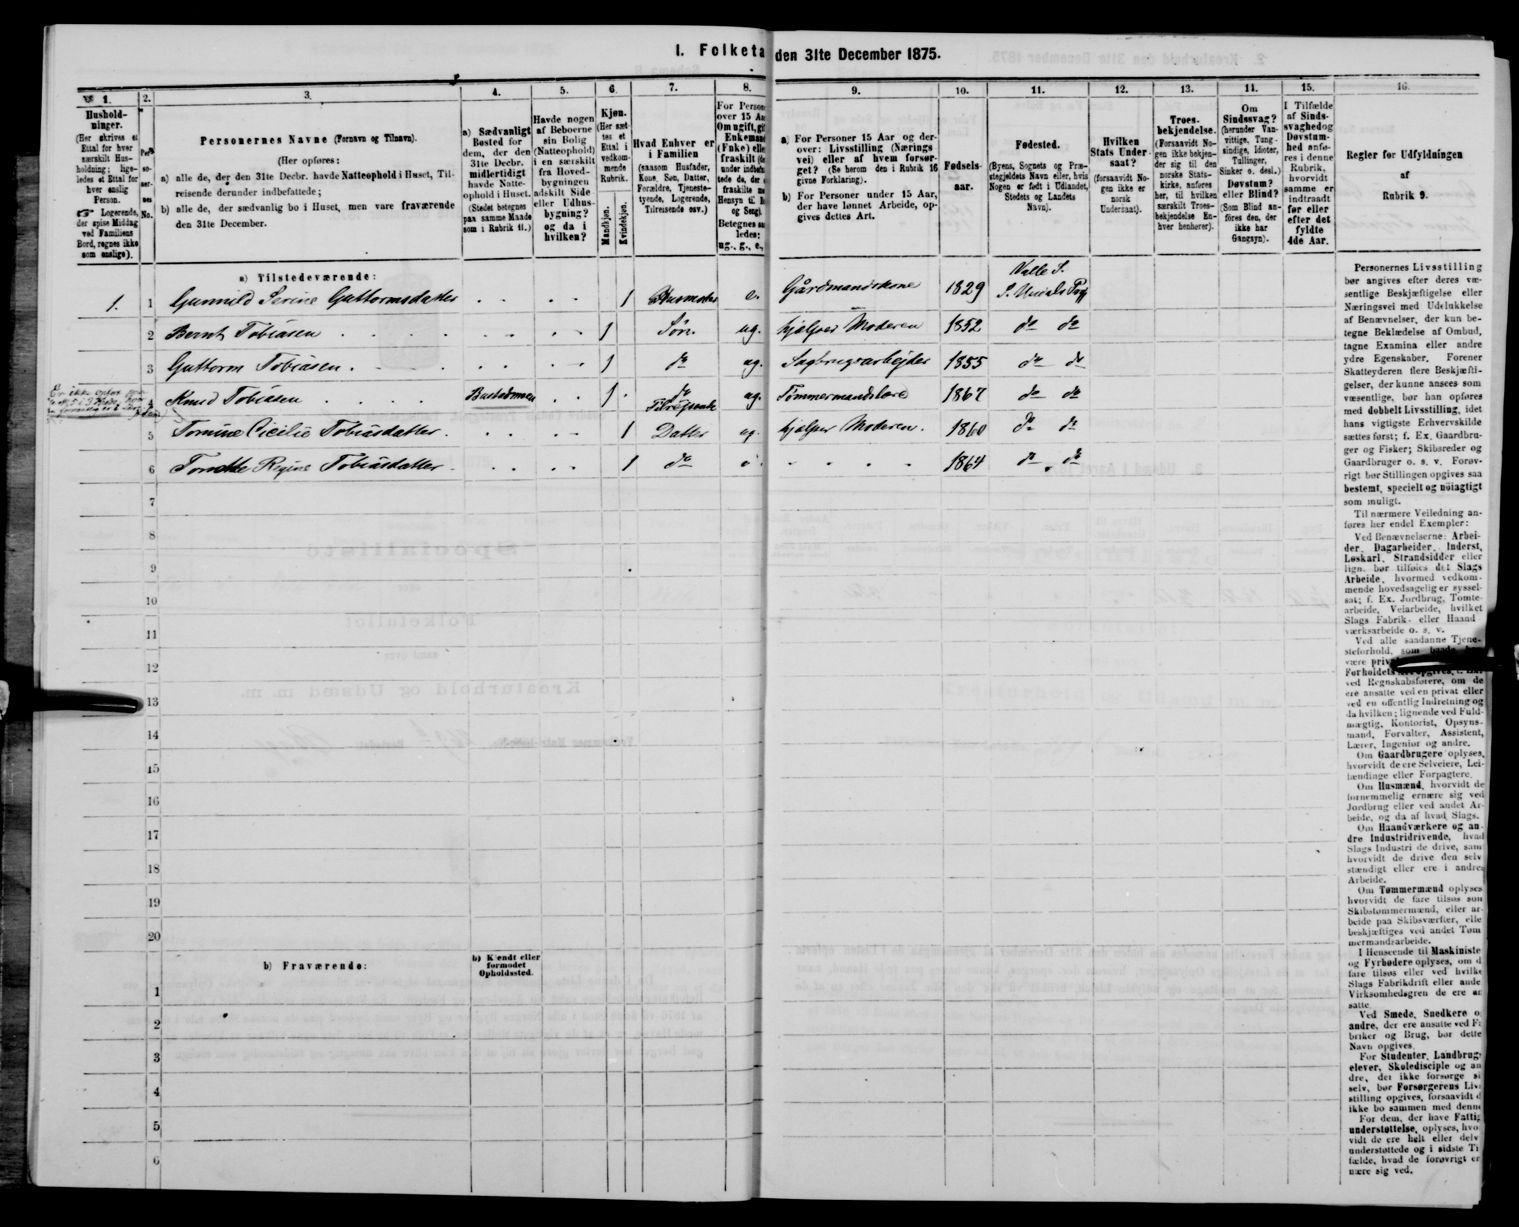 1. Folketa den 31te December 1875.
1.
Hushold-
ninger.
(Her skrives et
Ettal for hver
særskilt Hus-
holdning; lige-
ledes et Ettal for
hver enslig
Person.
Logerende,
der spise Middag
ved Familiens
Bord, regnes ikke
som enslige).
2.
Per-
so-
ner-
nes
No.
3.
Personernes Navne (Fornavn og Tilnavn).
(Her opføres:
a) alle de, der den 31te Decbr. havde Natteophold i Huset, Til-
reisende derunder indbefattede;
b) alle de, der sædvanlig bo i Huset, men vare fraværende
den 31te December.
4.
a) Sædvanligt
Bosted for
dem, der den
31te Decbr.
midlertidigt
havde Natte-
ophold i Huset.
(Stedet betegnes
paa samme Maade
som i Rubrik 11.)
5.
Havde nogen
af Beboerne
sin Bolig
(Natteophold)
i en særskilt
fra Hoved-
bygningen
adskilt Side-
eller Udhus-
bygning?
og da i
hvilken?
6.
Kjøn.
(Her sæt-
tes et
Ettal i
vedkom-
mende
Rubrik.
Mandkjøn.
Kvindekjøn.
7.
Hvad Enhver er
i Familien
(saasom Husfader,
Kone, Søn, Datter,
Forældre, Tjeneste-
tyende, Logerende,
Tilreisende osv.)
8.
For Person
over 15 Aa
Om ugift, gif
Enkemand
(Enke) elle
fraskilt (de
under indbefa
tede de, der e
fraskilte m
Hensyn til B
og Seng).
Betegnes saa
ledes:
ug., g., e.,
9.
a) For Personer 15 Aar og der-
over: Livsstilling (Nærings-
vei) eller af hvem forsør-
get? (Se herom den i Rubrik 16
givne Forklaring).
b) For Personer under 15 Aar,
der have lønnet Arbeide, op-
gives dettes Art.
10.
Fødsels-
aar.
11.
Fødested.
(Byens, Sognets og Præ-
stegjeldets Navn eller, hvis
Nogen er født i Udlandet,
Stedets og Landets
Navn).
12.
Hvilken
Stats Under-
saat?
(forsaavidt No-
gen ikke er
norsk
Undersaat).
13.
Troes-
bekjendelse.
(Forsaavidt No-
gen ikke bekjen-
der sig til den
norske Stats-
kirke, anføres
her, til hvilken
særskilt Troes-
bekjendelse En-
hver henhører).
11.
Om
Sindssvag?
(herunder Van-
vittige, Tung-
sindige, Idioter,
Tullinger,
Sinker o. desl.)
Døvstum?
eller Blind?
(Som Blind an-
føres den, der
ikke har
Gangsyn).
15.
I Tilfælde
af Sinds-
svaghedog
Døvstum-
hed anfø-
res i denne
Rubrik,
hvorvidt
samme er
indtraadt
før eller
efter det
fyldte
4de Aar.
16.
Regler for Udfyldningen
af
Rubrik 9.
a) Tilstedeværende:
1. 1 Gunnild Serine Guttormsdatter 1 Husmoder e. Gårdmandskone 1829 Valle S. S. Undals Pg
2 Bernt Tobiasen 1 Søn. ug. hjælper Moderen 1852 do do
3 Guttorm Tobiasen 1 do ug. Sagbrugsarbejder 1855 do do
4 Knud Tobiasen 1 do Tilreisende ug. Tømmermandslære 1867 do do
5 Tomine Cicilie Tobiasdatter 1 Datter ug. hjælper Moderen. 1860 do do
6 Tomette Regine Tobiasdatter 1 do 1864 do do
7
8
9
10
11
12
13
14
15
16
17
18
19
20
b) Fraværende:
b) Kjendt eller
formodet
Opholdssted.
1
2
3
4
5
6
Personernes Livsstilling
bør angives efter deres væ-
sentlige Beskjæftigelse eller
Næringsvei med Udelukkelse
af Benævnelser, der kun be-
tegne Beklædelse af Ombud,
tagne Examina eller andre
ydre Egenskaber. Forener
Skatteyderen flere Beskjæfti-
gelser, der kunne ansees som
væsentlige, bør han opføres
med dobbelt Livsstilling, idet
hans vigtigste Erhvervskilde
sættes først; f. Ex. Gaardbru-
ger og Fisker; Skibsreder og
Gaardbruger o. s. v. Forøv-
rigt bør Stillingen opgives saa
bestemt, specielt og nøiagtigt
som muligt.
Til nærmere Veiledning an-
føres her endel Exempler:
Ved Benævnelserne: Arbei-
der, Dagarbeider, Inderst,
Løskarl, Strandsidder eller
lign. bør tilføies det Slags
Arbeide, hvormed vedkom-
mende hovedsagelig er syssel-
sat; f. Ex. Jordbrug, Tomte-
arbeide, Veiarbeide, hvilket
Slags Fabrik- eller Haand-
værksarbeide o. s. v.
Ved alle saadanne Tjene-
steforhold, som
være
Forholdets
ved Regnskabsførere, om de
ere ansatte ved en privat eller
ved en offentlig Indretning og
da hvilken; lignende ved Fuld-
mægtig, Kontorist, Opsyns-
mand, Forvalter, Assistent,
Lærer, Ingeniør og andre.
Om Gaardbrugere oplyses,
hvorvidt de ere Selveiere, Lei-
lændinge eller Forpagtere.
Om Husmænd, hvorvidt de
fornemmelig ernære sig ved
Jordbrug eller ved andet Ar-
beide, og da af hvad Slags.
Om Haandværkere og an-
dre Industridrivende, hvad
Slags Industri de drive, samt
hvorvidt de drive den selv-
stændigt eller ere i andres
Arbeide.
Om Tømmermænd oplyses
hvorvidt de fare tilsøs som
Skibstømmermænd, eller ar-
beide paa Skibsværfter, elle
beskjæftiges ved andet Tøm
mermandsarbeide.
I Henseende til Maskiniste
og Fyrbødere oplyses, om d
fare tilsøs eller ved hvilke
Slags Fabrikdrift eller ande
Virksomhedsgren de ere an
satte.
Ved Smede, Snedkere o
andre, der ere ansatte ved F
briker og Brug, bør dette
Navn opgives.
For Studenter, Landbrugs
elever, Skoledisciple og an
dre, der ikke forsørge si
selv, bør Forsørgerens Liv
stilling opgives, forsaavidt d
ikke bo sammen med denne
For dem, der have Fattig
understøttelse, oplyses, hvo
vidt de ere helt eller delv
understøttede og i sidste Ti
fælde, hvad de forøvrigt er
nære sig ved.